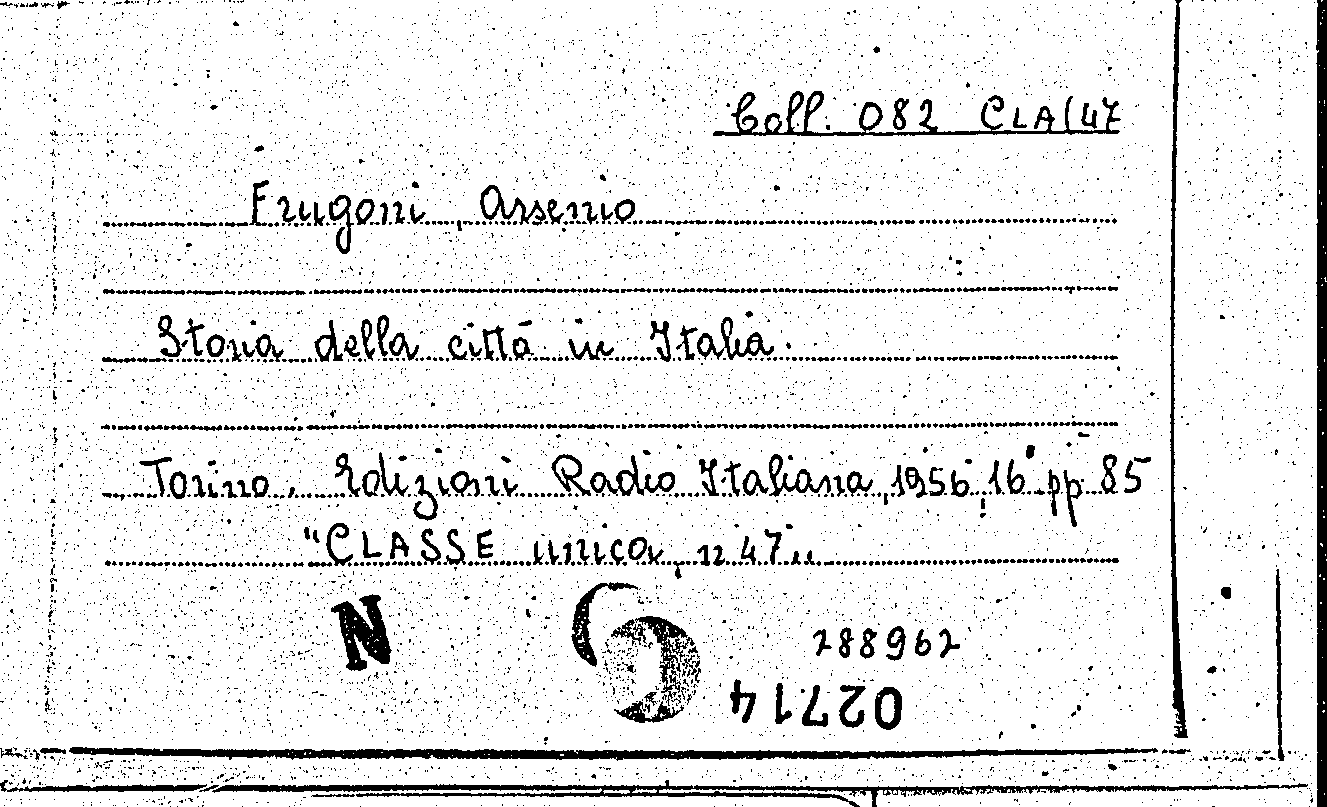 Coll. 082 CLA/47
Frugoni, Arsenio
Storia della città in Italia.
Torino, Edizioni Radio Italiana, 1956, 16° pp. 85
"CLASSE unica, n 47"
N
288962
02714